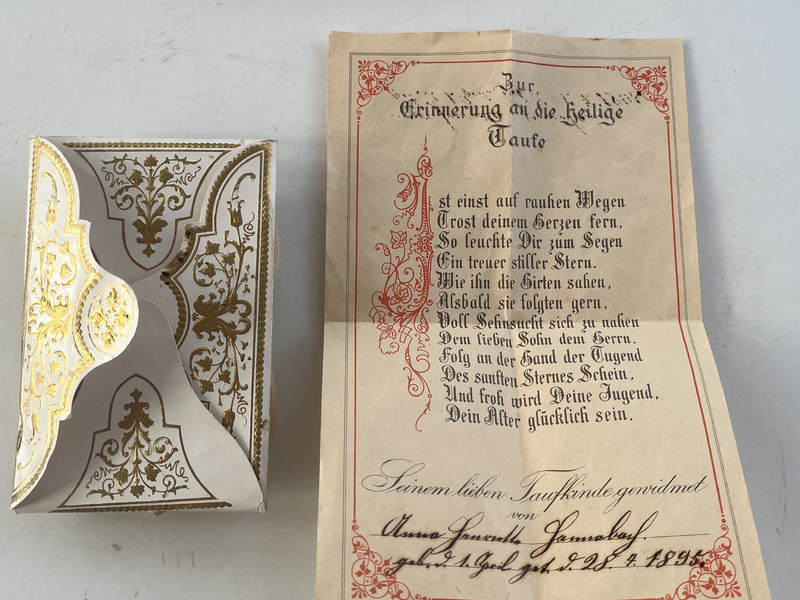 Zur
Erinnerung an die heilige
Taufe
Ist einst auf rauhen Wegen
Trost deinem Herzen fern,
So leuchte Dir zum Segen
Ein treuer stiller Stern.
Wie ihn die Hirten sahen,
Alsbald sie folgten gern,
Voll Sehnsucht sich zu nahen
Dem lieben Sohn dem Herrn.
Folg an der Hand der Tugend
Des sanften Sternes Schein,
Und froh wird Deine Jugend,
Dein Alter glücklich sein.
Seinem lieben Taufkinde gewidmet
von
Anna Henriette Hannabach.
geb. d. 1. April get. d. 28. 4. 1895.